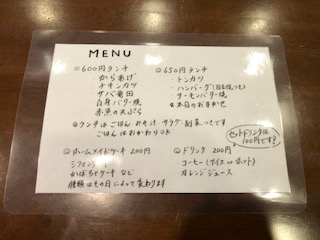 MENU
○600円ランチ
・からあげ
・チキンカツ
・サバ竜田
・白身バター焼
・赤魚の天ぷら
◎650円ランチ
・トンカツ
・ハンバーグ(目玉焼つき)
・サーモンバター焼
★本日のおまかせ
◎ランチはごはん みそ汁 サラダ 副菜 つきです
ごはんはおかわりOK
セットドリンクは
100円です!
◎ホームメイドケーキ 200円
シフォンケーキ
かぼちゃケーキ など
種類はその日によって変わります
◎ドリンク 200円
コーヒー(アイス or ホット)
オレンジジュース